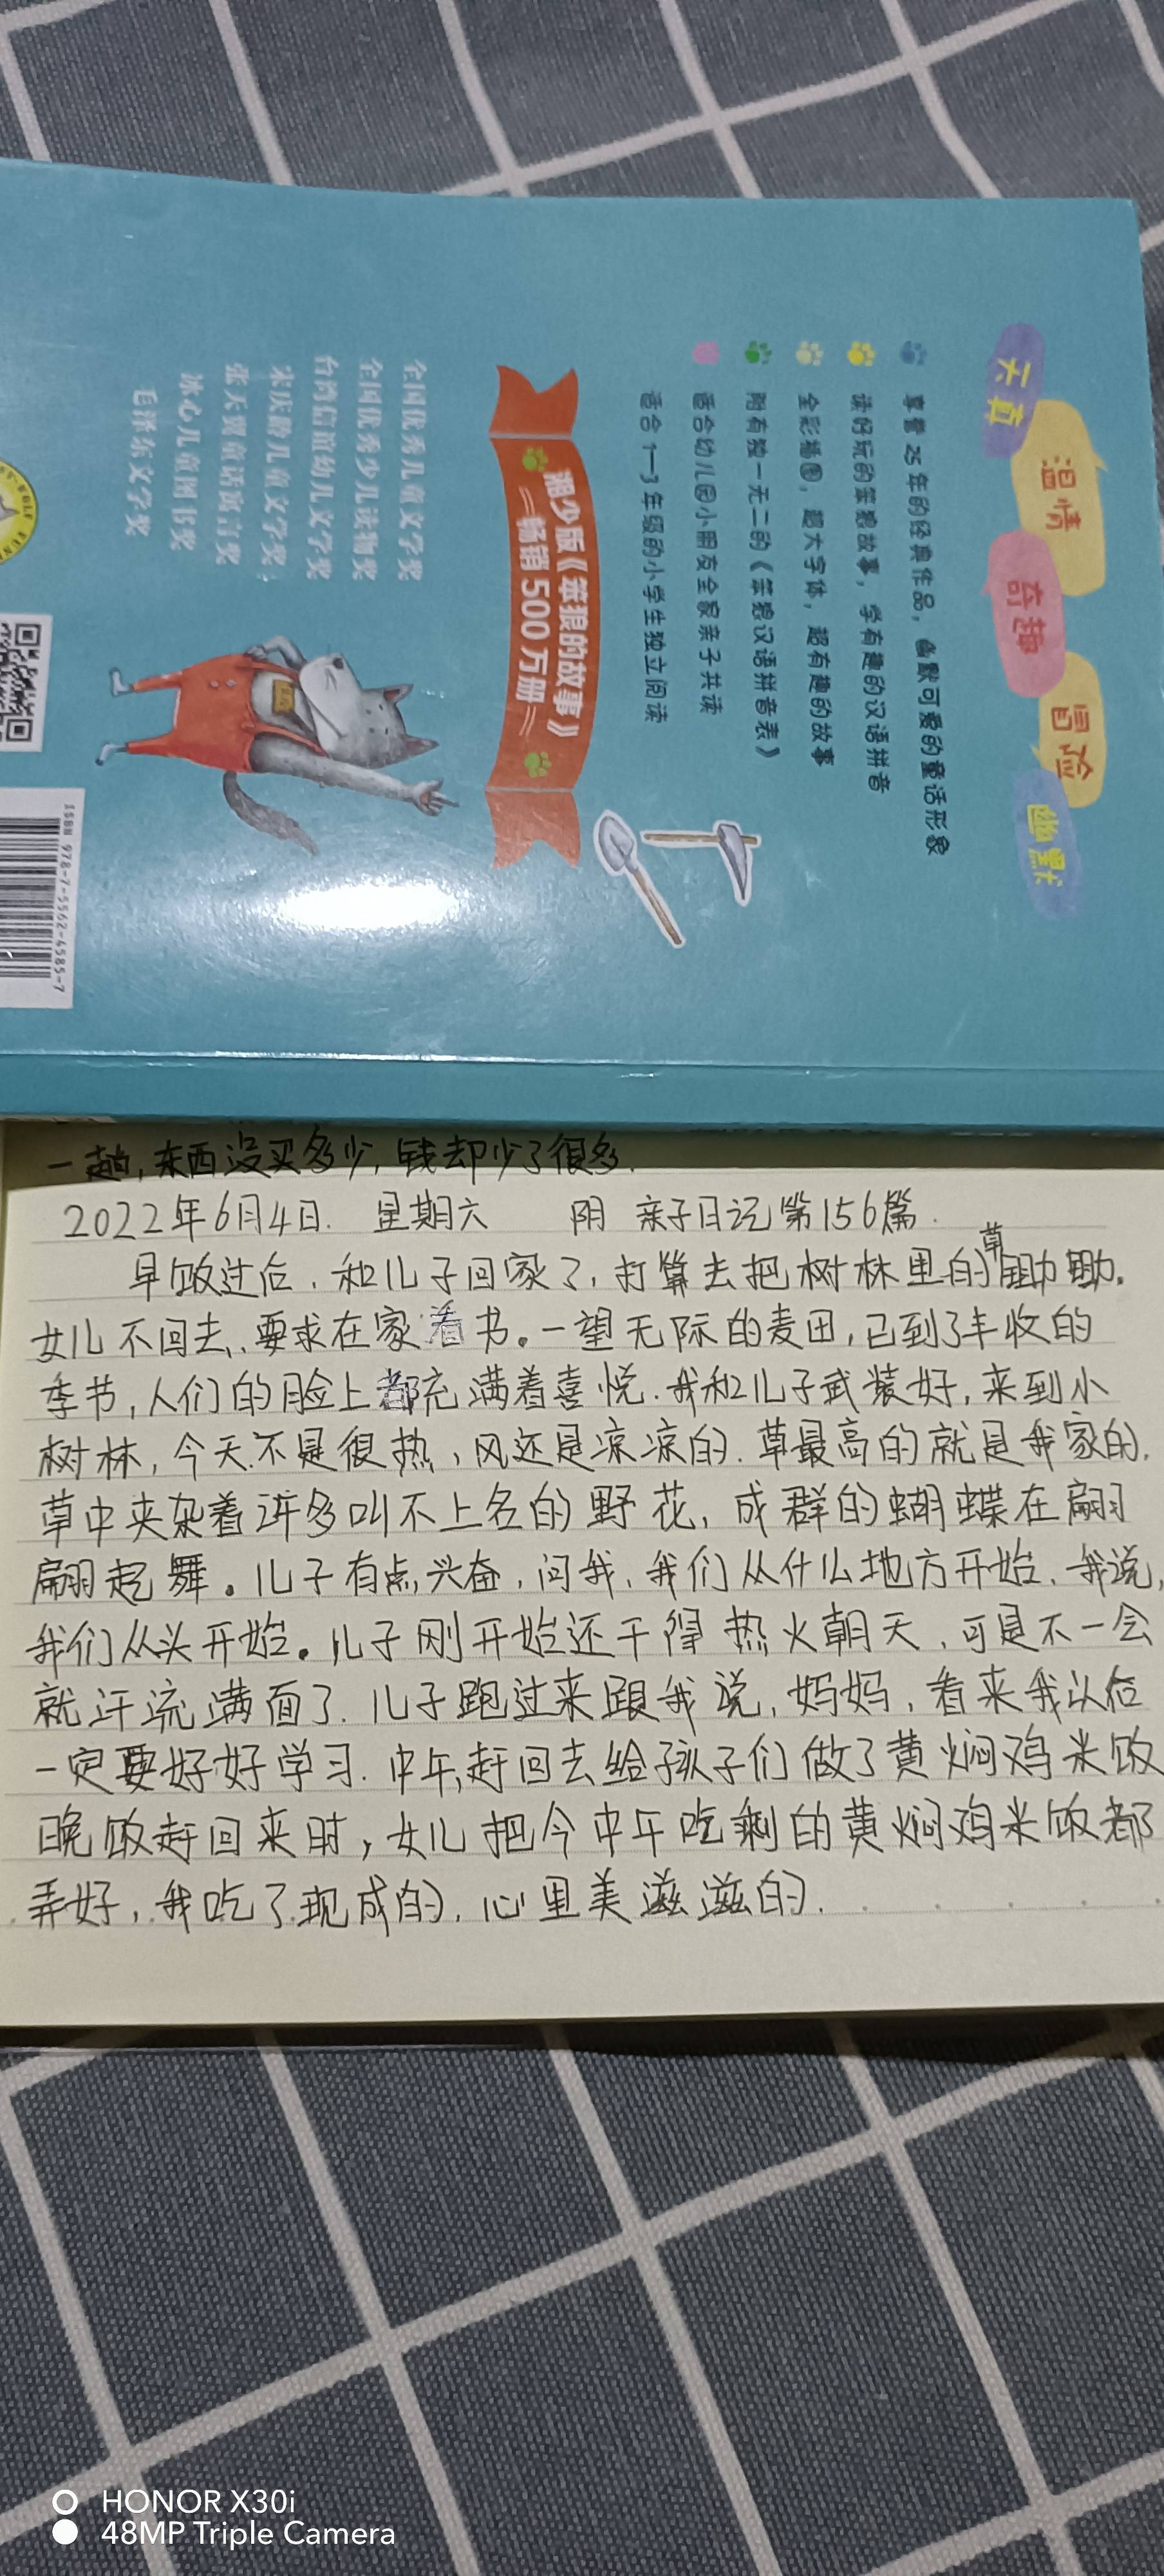 天真
温情
奇趣
冒险
幽默
享誉25年的经典作品，幽默可爱的童话形象
读好玩的笨狼故事，学有趣的汉语拼音
全彩插图，超大字体，超有趣的故事
附有独一无二的《笨狼汉语拼音表》
适合幼儿园小朋友全家亲子共读
适合1—3年级的小学生独立阅读
湘少版《笨狼的故事》
畅销500万册
全国优秀儿童文学奖
全国优秀少儿读物奖
台湾信谊幼儿文学奖
宋庆龄儿童文学奖
张天翼童话寓言奖
冰心儿童图书奖
毛泽东文学奖
ISBN 978-7-5562-4585-7
一趟，东西没买多少，钱却少了很多.
2022年6月4日. 星期六 阴 亲子日记第156篇.
早饭过后，和儿子回家了，打算去把树林里的草锄锄。
女儿不回去，要求在家看书。一望无际的麦田，已到了丰收的
季节，人们的脸上都充满着喜悦.我和儿子武装好，来到小
树林，今天不是很热，风还是凉凉的.草最高的就是我家的.
草中夹杂着许多叫不上名的野花，成群的蝴蝶在翩
翩起舞。儿子有点兴奋，问我，我们从什么地方开始，我说，
我们从头开始。儿子刚开始还干得热火朝天，可是不一会
就汗流满面了.儿子跑过来跟我说，妈妈，看来我以后
一定要好好学习.中午，赶回去给孩子们做了黄焖鸡米饭
晚饭赶回来时，女儿把今中午吃剩的黄焖鸡米饭都
弄好，我吃了现成的，心里美滋滋的.
HONOR X30i
48MP Triple Camera